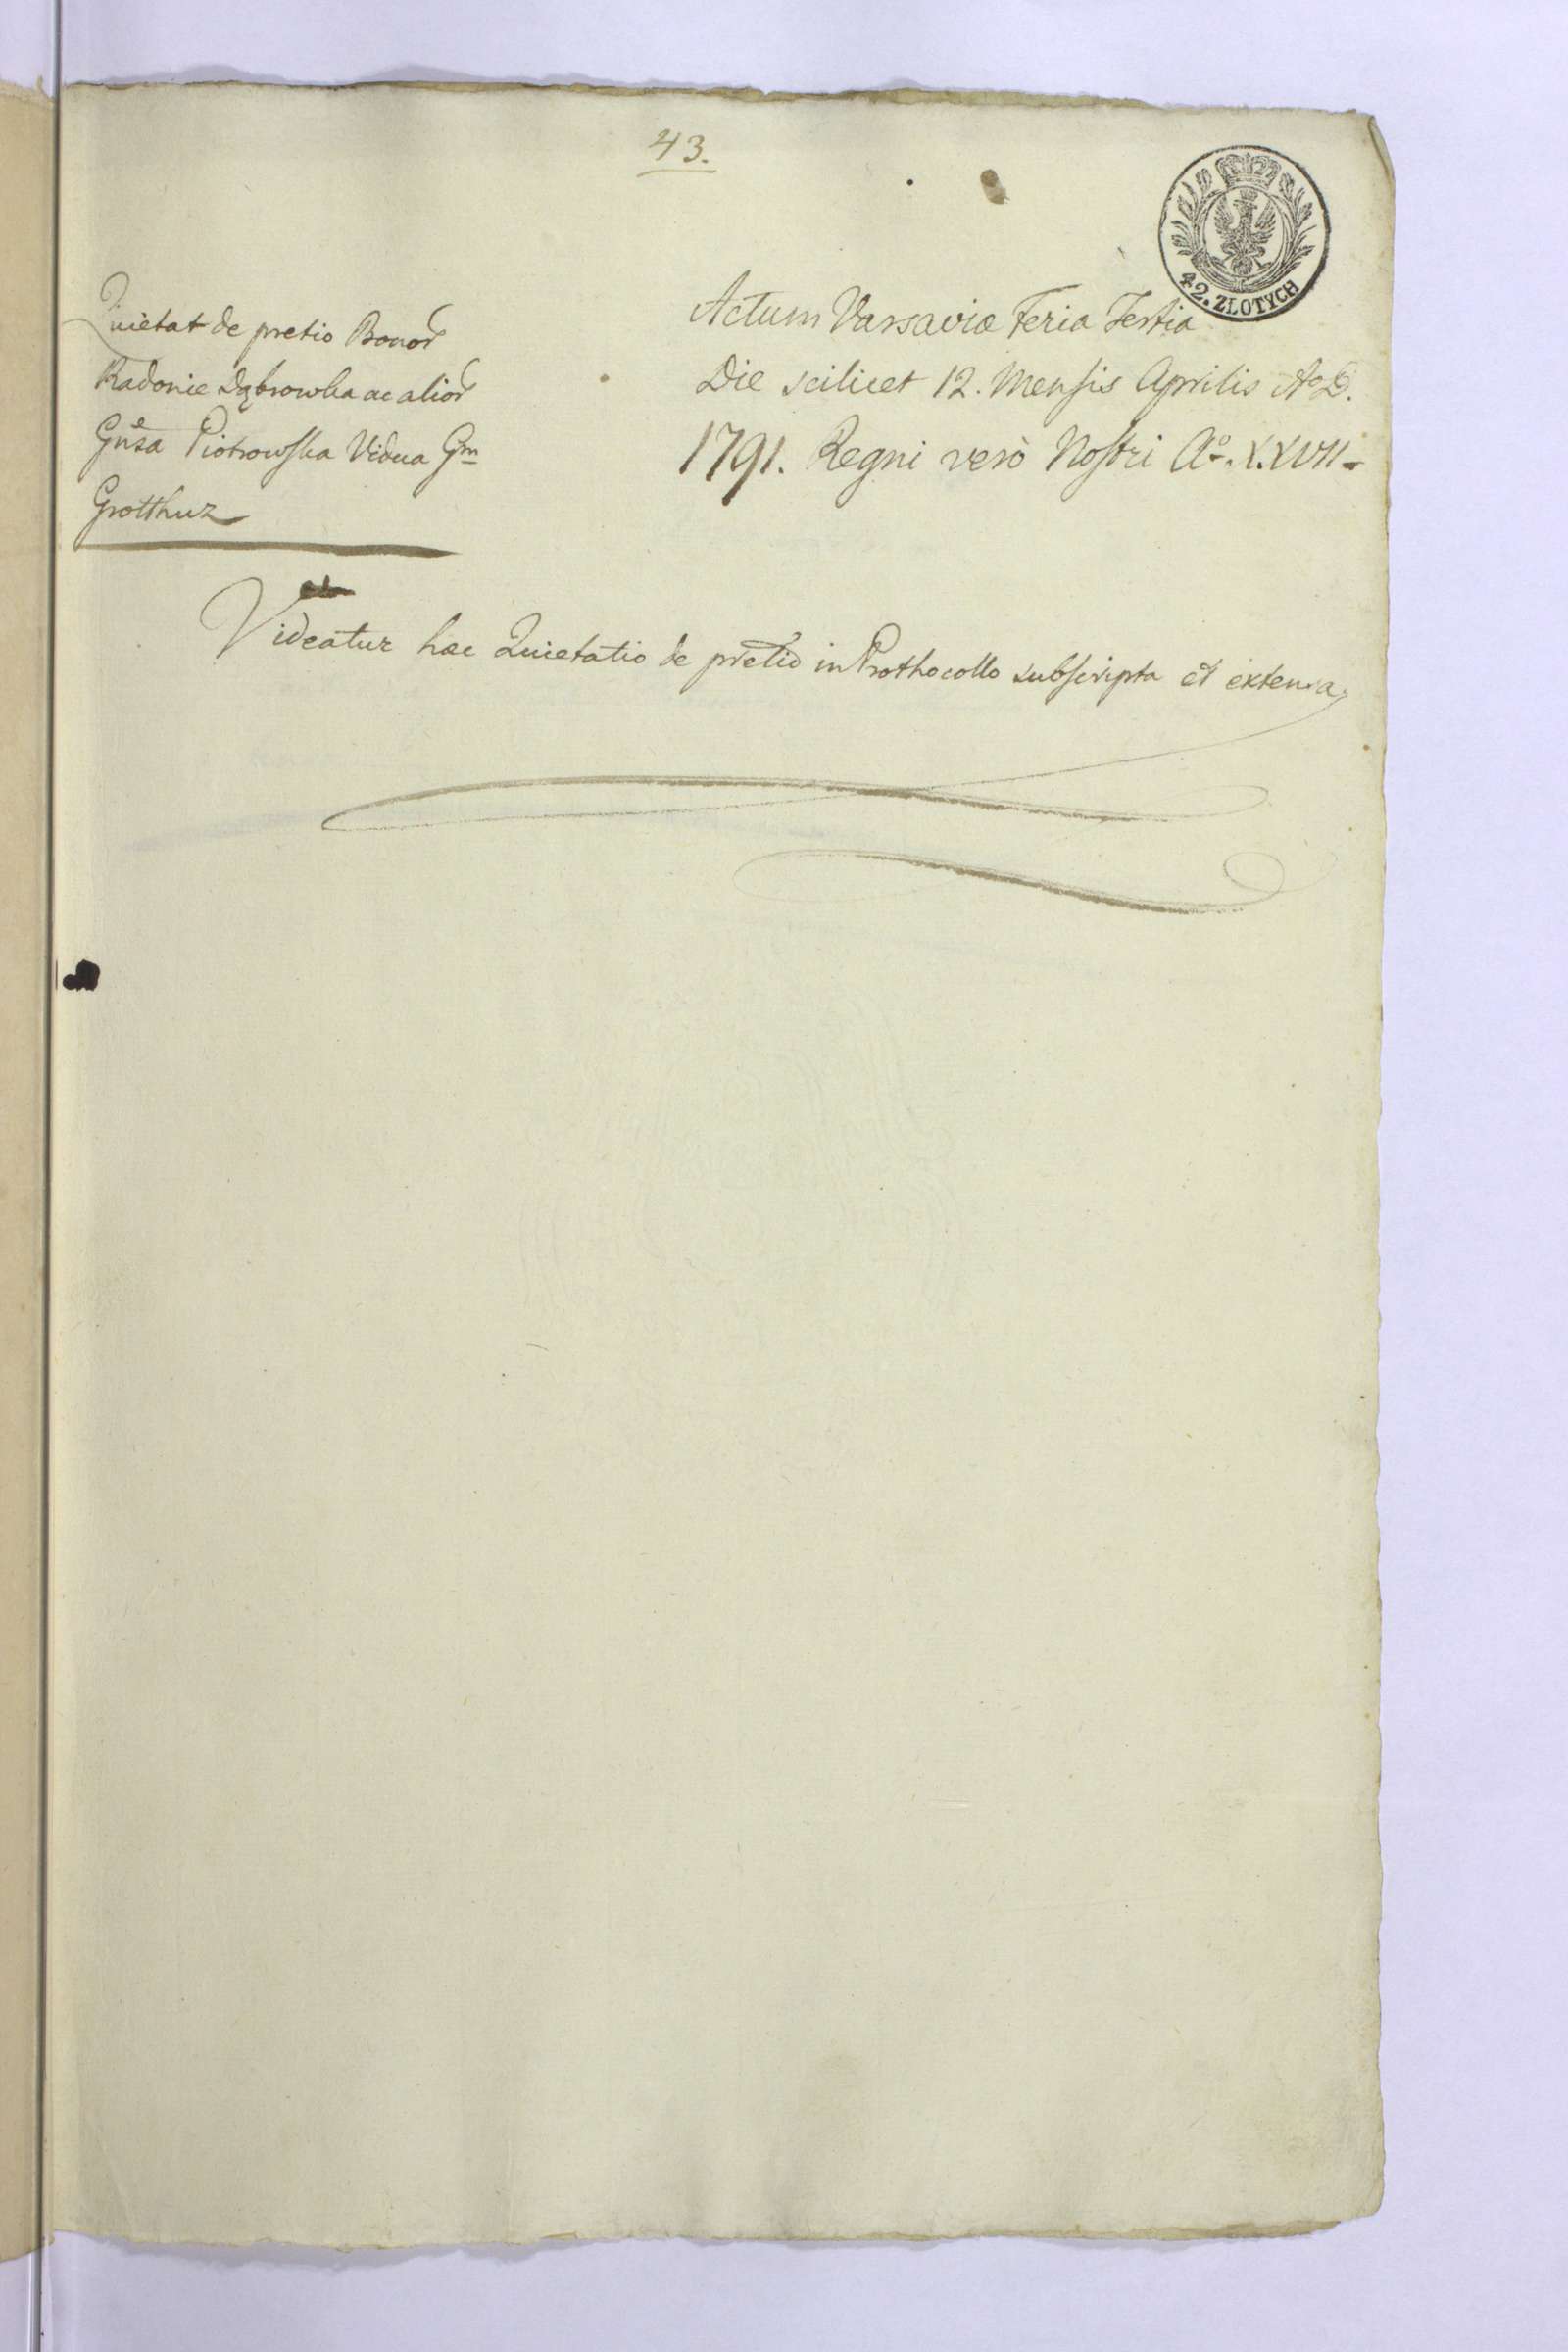 43.
42. ZŁOTYCH
Quietat de pretio Bonor
Radonie Dąbrowka ac alior
Gnsa Piotrowska Vidua Gm
Grotthuz
Actum Varsaviæ Feria Tertia
Die scilicet 12. Mensis Aprilis Ao D.
1791. Regni verò Nostri Ao. X.XVII
Videatur hæc Quietatio de pretio in Prothocollo subscripta et extensa,